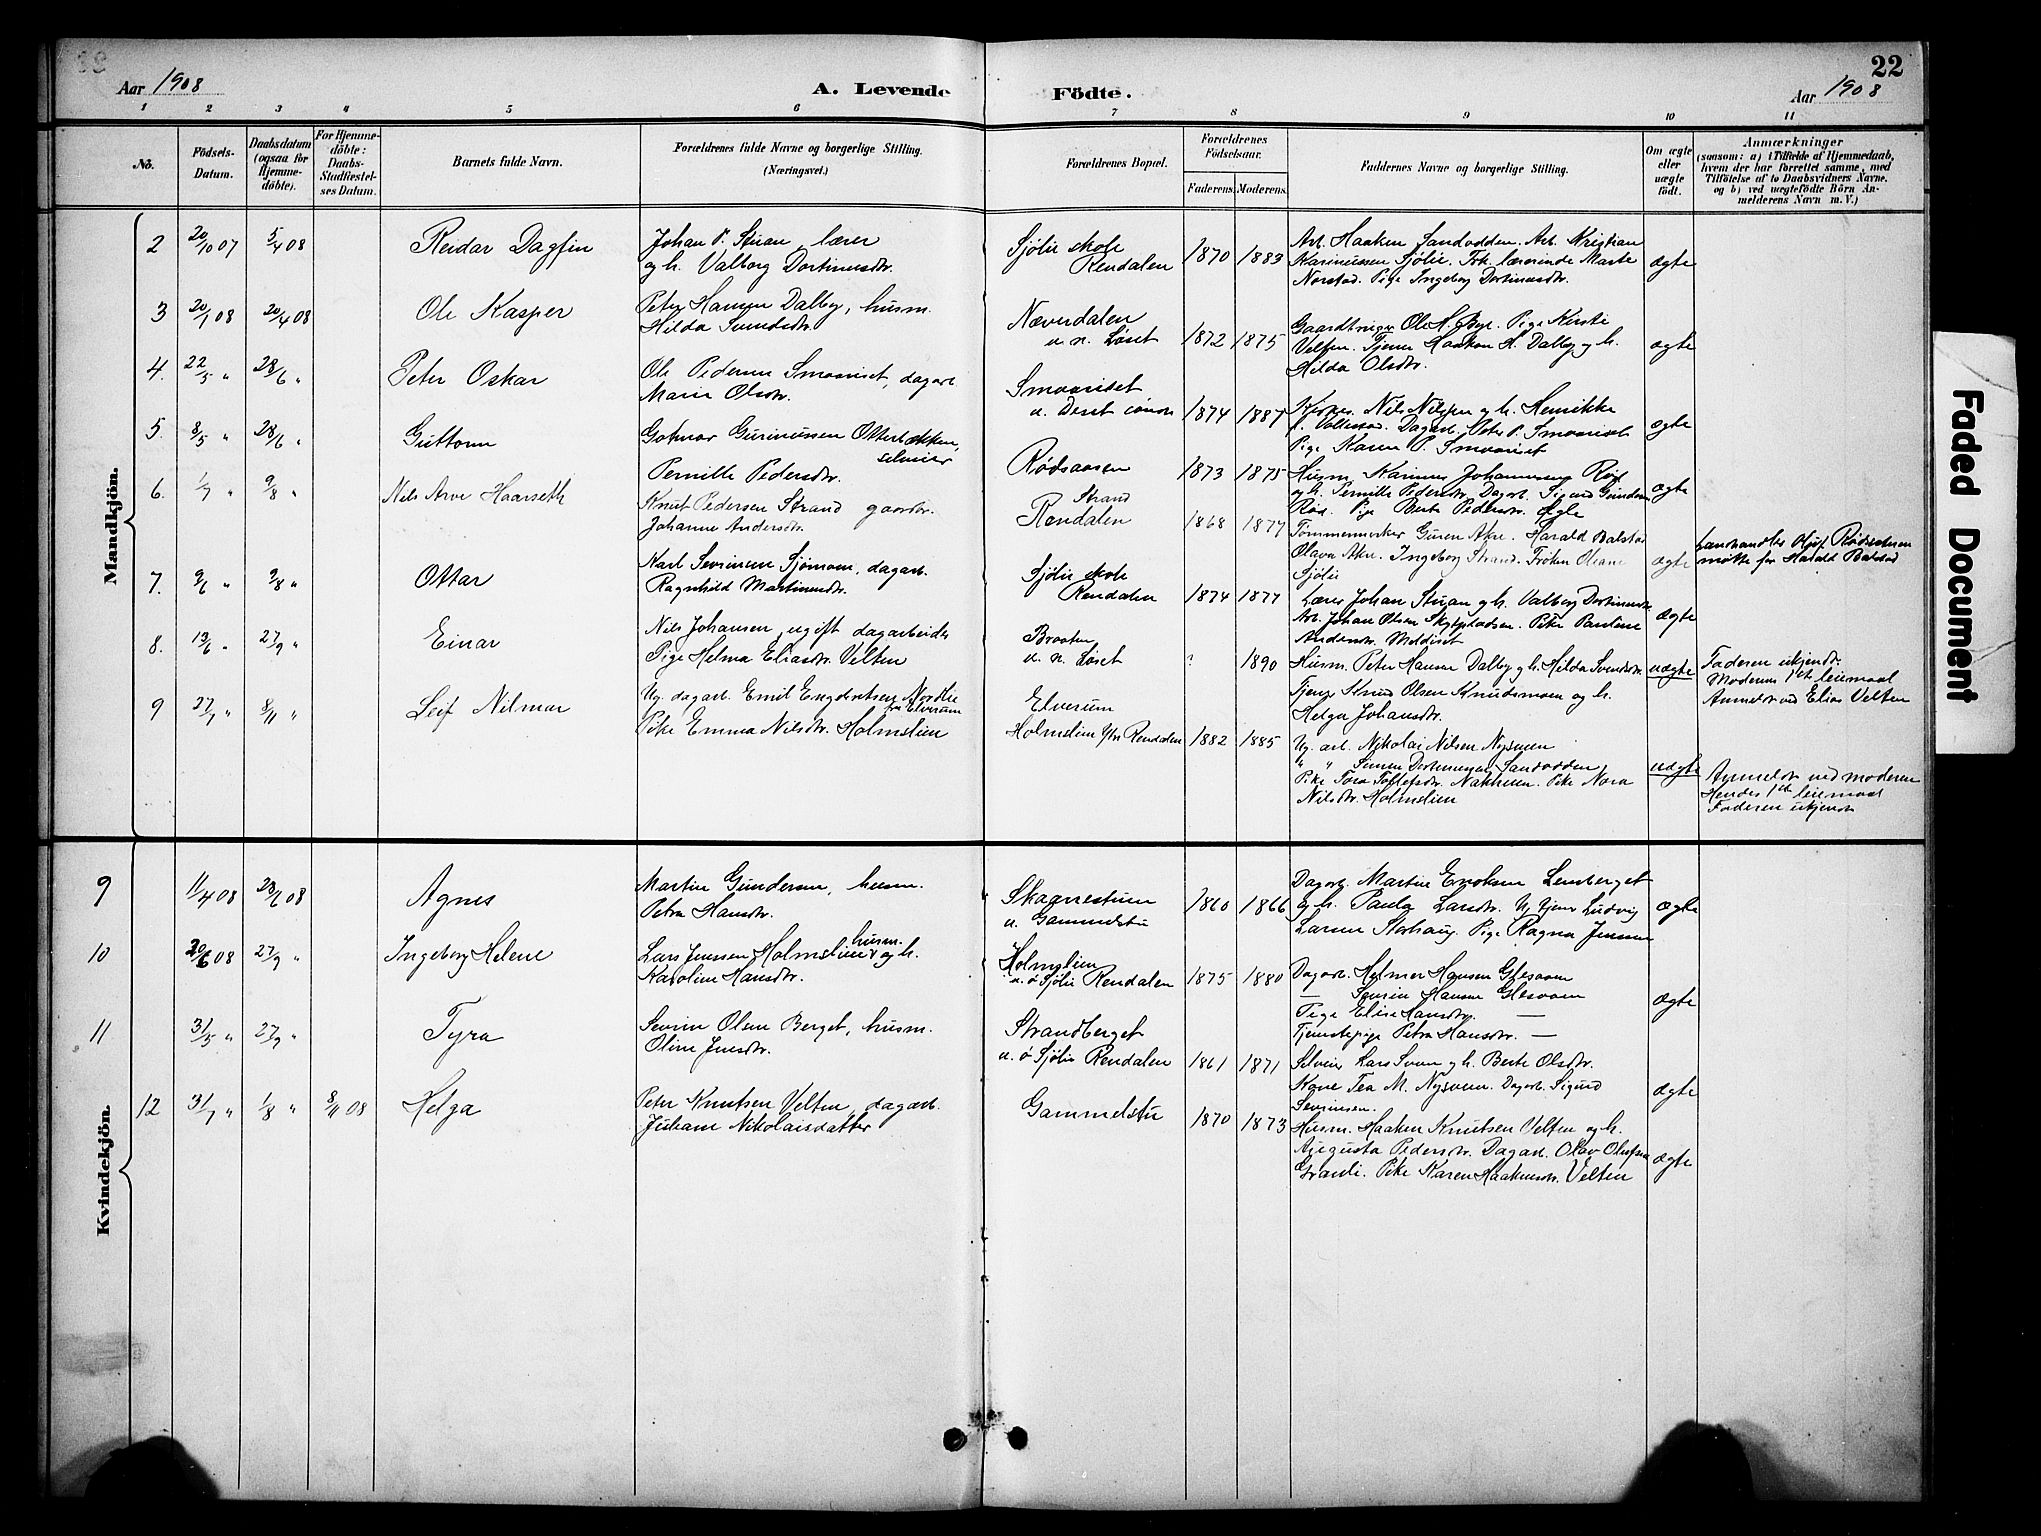 22
Aar 1908
A. Levende Födte.
Aar 1908
1 2 3 4 5 6 7 8 9 10 11
No.
Födsels-
Datum.
Daabsdatum
(ogsaa for
Hjemme-
döbte).
For Hjemme-
döbte:
Daabs-
Stadfæstel-
ses Datum.
Barnets fulde Navn.
Forældrenes fulde Navne og borgerlige Stilling.
(Næringsvei.)
Forældrenes Bopæl.
Forældrenes
Födselsaar.
Faderens.
Moderens.
Faddernes Navne og borgerlige Stilling.
Om ægte
eller
uægte
født.
Anmærkninger
(saasom: a) i Tilfælde af Hjemmedaab,
hvem der har forrettet samme, med
Tilföielse af to Daabsvidners Navne.
og b) ved uægtefödte Börn An-
melderens Navn m. V.)
Mandkjön.
2 20/10 07 5/4 08 Reidar Dagfin
Johan P. Stuan, lærer
og h. Valborg Dortinusdtr.
Sjølie skole
Rendalen
1870 1883
Arb. Haaken Sandodden. Arb. Kristian
Karinussen Sjølie. Frk. lærerinde Marte
Norstad. Pige Ingeborg Dortinusdtr.
ægte
3 20/1 08 20/4 08 Ole Kasper
Peter Hansen Dalby, husm.
Hilda Svendsdtr.
Næverdalen
u. n. Løset
1872 1875
Gaardbruger Ole H. Bye. Pige Kirsti
Velten. Tjener Haakon H. Dalby og h.
Hilda Olsdtr.
ægte
4. 22/5 " 28/6 " Peter Oskar
Ole Pedersen Smaariset, dagarb.
Marie Olsdtr.
Smaariset
u. Deset
1874 1887
Nils Nilsen og h. Henrikke
Dagarb. Peter P. Smaariset
Pige Karen P. Smaariset
ægte
5. 8/5 " 28/6 " Guttorm
Gotmar Gurinussen Otterbækken,
selveier
Pernille Pedersdtr.
Rødsaasen
1873 1875
Husm. Karinus Johannessen Rød
og h. Pernille Pedersdtr. Dagarb. Sigurd Gundersen
Rød. Pige Berte Pedersdtr.
ægte
6. 1/7 " 9/8 " Nils Arve Haarseth
Knut Pedersen Strand gaardbr.
Johanne Andersdtr.
Strand
Rendalen
1868 1877
Tømmermerker Guren Akre. Harald Balstad
Olava Akre. Ingeborg Strand. Frøken Oleane
Sjølie
ægte
Landhandler Oluf Rødsæteren
møtte for Harald Balstad
7. 9/6 " 9/8 " Ottar
Karl Severinsen Sjømoen, dagarb.
Ragnhild Martinusdtr.
Sjølie skole
Rendalen
1874 1877
Lærer Johan Stuan og h. Valborg Dortinusdtr.
Arb. Johan Olsen. Pike Pauline
Andersdtr. Meldiset
ægte
8. 13/6 " 27/9 " Einar
Nils Johansen, ugift dagarbeider
Pige Helma Eliasdtr. Velten
Braaten
u. n. Løset
? 1890
Husm. Peter Hansen Dalby og h. Hilda Svendsdtr.
Tjener Knud Olsen Knudsmoen og h.
Helga Johansdtr.
uægte
Faderen ukjendt.
Moderens 1ste leiermaal
Anmeldt ved Elias Velten
9 27/7 " 8/11 " Leif Nilmar
Ug. dagarb. Emil Engebretsen Nordlie
fra Elverum
Pike Emma Nilsdtr. Holmslien
Elverum
Holmslien Ytre Rendalen
1882 1885
Ug. arb. Nikolai Nilsen Nysveen
" " Simen Dortinusen Sandodden
Pike Tora Tollefsdtr. Nakkeen. Pike Nora
Nilsdtr. Holmslien
uægte
Anmeldt ved moderen
Hendes 1ste leiermaal
Faderen ukjendt
Kvindekjön.
9 11/4 08 28/6 08 Agnes
Martin Gundersen, husm.
Petra Hansdtr.
Skaanestuen
u. Gammelstu
1860 1866
Dagarb. Martin Eriksen Lensberget
og h. Paula Larsdtr. Ug. tjener Ludvig
Larsen Storhaug. Pige Ragna Jensen
ægte
10 20/6 08 27/9 " Ingeborg Helene
Lars Jenssen Holmslien husm. og h.
Karoline Hansdtr.
Holmslien
u. ø Sjølie Rendalen
1875 1880
Dagarb. Helmer Hansen Glesaaen
— Severin Hansen Glesaaen
Pige Elise Hansdtr. —
Tjenestepige Petra Hansdtr. —
ægte
11 31/5 " 27/9 " Tyra
Severin Olsen Berget, husm.
Oline Jensdtr.
Strandberget
u. ø Sjølie Rendalen
1861 1871
Selveier Lars Sveen og h. Berte Olsdtr.
Kone Tea M. Nysveen. Dagarb. Sigurd
Severinsen.
ægte
12 31/7 " 1/8 " 8/11 08 Helga
Peter Knutsen Velten, dagarb.
Juliane Nikolaisdatter
Gammelstu
1870 1873
Husm. Haaken Knutsen Velten og h.
Augusta Pedersdtr. Dagarb. Olav Olufsen
Granli. Pike Karen Haakensdtr. Velten
ægte
Faded Document